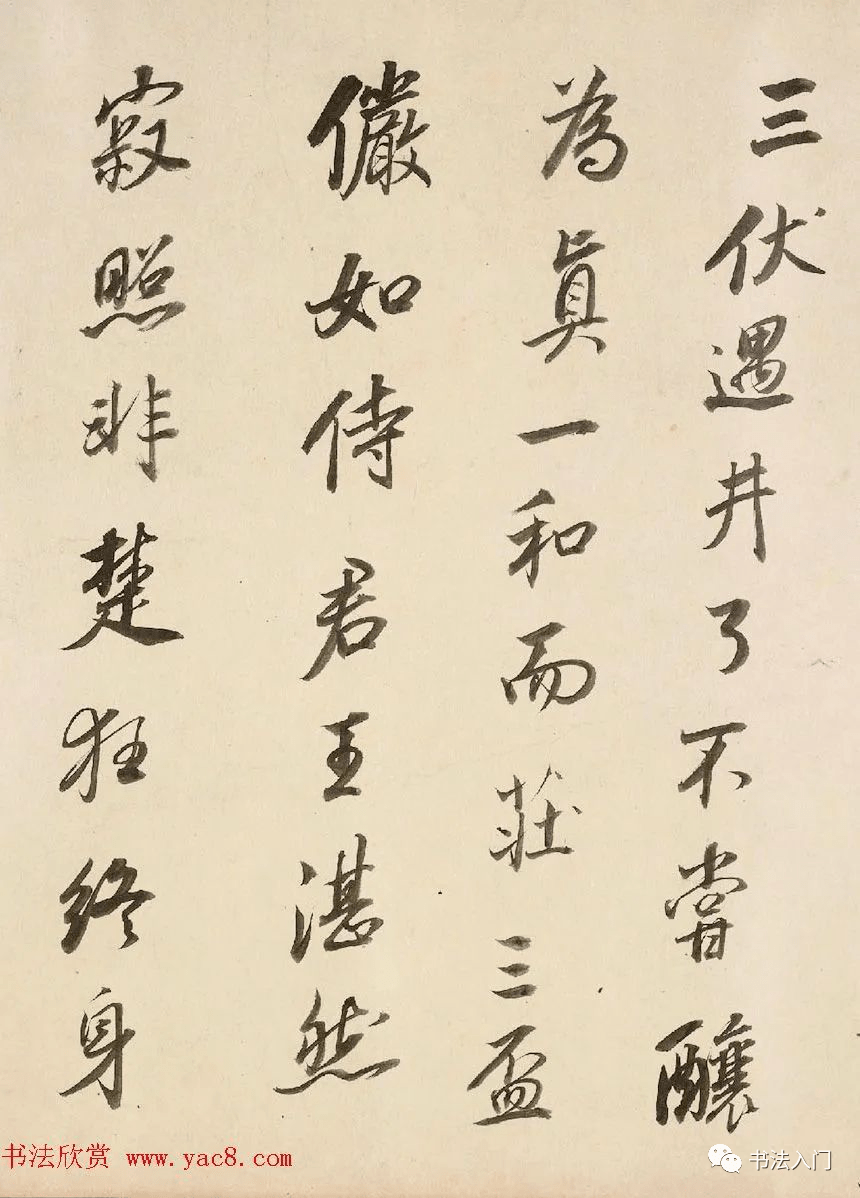 三伏遇井了不甞釀
為真一和而莊三盃
儼如侍君王湛然
寂照非楚狂終身
书法欣赏 www.yac8.com
书法入门